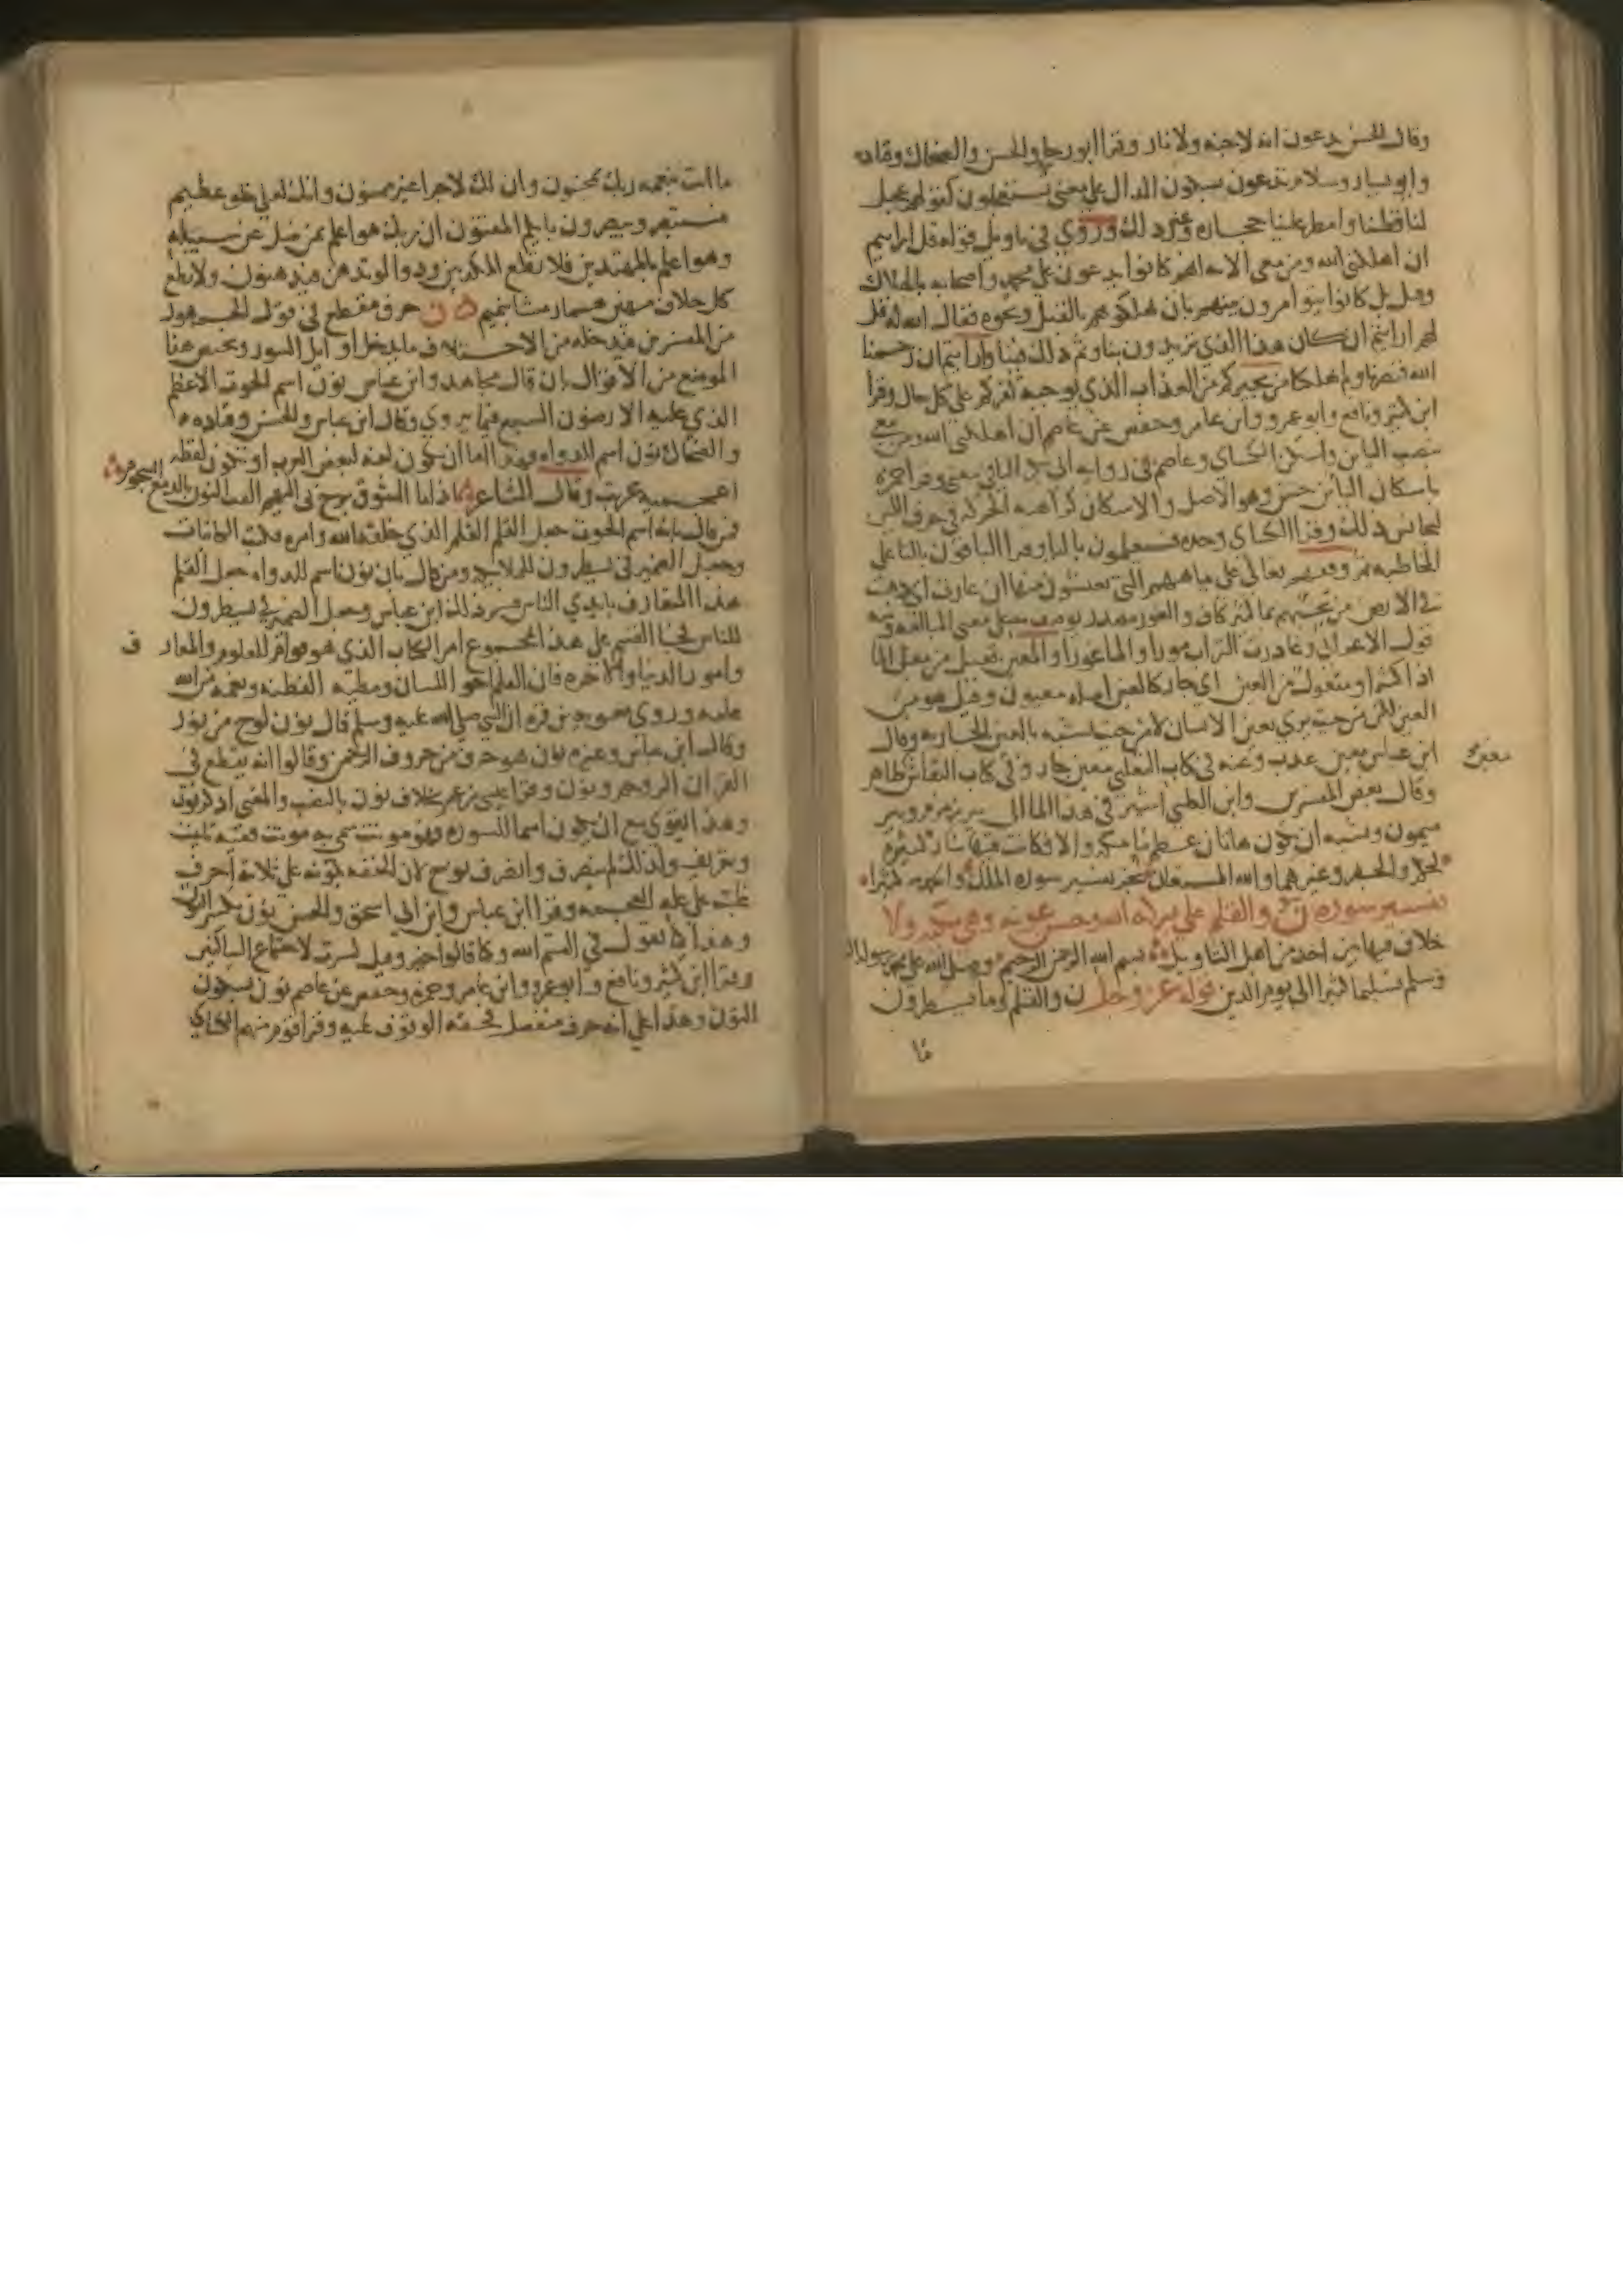 وقال الحسن يدعون انه لاجنه ولا نار وقرا ابو رجا والحسن والضحاك وقتاده
وابو يسار وسلام تدعون بسكون الدال على معنى تستعجلون كقولهم عجل
لنا قطنا وامطر علينا حجاره وغير ذلك وروي في تاويل قوله قل ارايتم
ان اهلكني الله ومن معى الايه انهم كانوا يدعون على محمد واصحابه بالهلاك
وقيل بل كانوا يتوامرون بينهم بان يهلكوهم بالقتل ونحوه فقال الله له قل
لهم ارايتم ان كان هذا الذي تريدون بنا وتم ذلك فينا او ارايتم ان رحمنا
الله فنصرنا ولم يهلكنا من يجيركم من العذاب الذي يوجبه كفركم على كل حال وقرا
ابن كثير ونافع وابو عمرو وابن عامر وحفص عن عاصم ان اهلكني الله ومن معى
بنصب اليائين واسكن الكساى وعاصم في رواية ابى بكر اليا في معى وقرا حمزه
باسكان اليائين وهو الاصل والاسكان كراهيه الحركه في حرف اللين
لتجانس ذلك وقرا الكساى وحده فسيعلمون باليا وقرا الباقون بالتا على
المخاطبه ثم وقفهم تعالى على مياههم التى يعيشون منها ان غارت اى ذهبت
في الارض من يجيبهم بما كثير كاف والغور مصدر يوصف به على معنى المبالغه ومنه
قول الاعرابي وغادرت التراب مورا والما غورا والمعين فعيل من معن الما
اذا كثر او مفعول من العين اى جار كالعين اصله معيون وقيل هو من
العين لكن من حيث يرى بعين الانسان لا من حيث يشبه بالعين الجاريه وقال
ابن عباس معين عذب وعنه في كتاب الثعلبي معين جار وفي كتاب النقاش ظاهر
معين
وقال بعض المفسرين وابن الكلبي اشير في هذا الما الى بير زمزم وبير
ميمون ويشبه ان تكون هاتان عظيم ما مكه والا فكانت فيها بيار كثيره
كخم والجفر وغيرهما والله المستعان نجز تفسير سوره الملك والحمد لله كثيرا
تفسير سوره ن والقلم على بركه الله وحسن عونه وهي مكيه ولا
خلاف فيها بين احد من اهل التاويل بسم الله الرحمن الرحيم وصلى الله على محمد رسوله
وسلم تسليما كثيرا الى يوم الدين قوله عز وجل ن والقلم وما يسطرون
ما
ما انت بنعمه ربك بمجنون وان لك لاجرا غير ممنون وانك لعلى خلق عظيم
فستبصر ويبصرون بايكم المفتون ان ربك هو اعلم بمن ضل عن سبيله
وهو اعلم بالمهتدين فلا تطع المكذبين ودوا لو تدهن فيدهنون ولا تطع
كل حلاف مهين هماز مشا بنميم ن حرف مقطع في قول الجمهور
من المفسرين فيدخله من الاختلاف ما يدخل اوايل السور ويختص هنا
الموضع من الاقوال بان قال مجاهد وابن عباس نون اسم الحوت الاعظم
الذي عليه الارضون السبع فيما يروي وقال ابن عباس والحسن وقتاده
والضحاك نون اسم للدواه وهذا اما ان تكون لغه لبعض العرب او تكون لفظه
اعجميه عربت وقال الشاعر اذا ما الشوق برح بى اليهم القت النون بالدمع السجوم
فمن قال بانه اسم الحوت جعل القلم القلم الذي خلقه الله وامره فكتب الكاينات
وجعل الضمير في يسطرون للملائكه ومن قال بان نون اسم للدواه جعل القلم
هذا المتعارف بايدي الناس نص ذلك ابن عباس وجعل الضمير في يسطرون
للناس فجا القسم على هذا بمجموع امر الكتاب الذي هو قوام للعلوم والمعار ف
وامور الدنيا والاخره فان القلم اخو اللسان ومطيه الفطنه ونعمه من الله
عامه وروى معويه بن قره ان النبي صلى الله عليه وسلم قال نون لوح من نور
وقال ابن عباس وغيره نون هو حرف من حروف الرحمن وقالوا انه تقطع في
القران الر وحم ونون وقرا عيسى بن عمر بخلاف نون بالنصب والمعنى اذكر نون
وهذا يقوى مع ان تكون اسما للسوره فهو مونث سمى به مونث ففيه تانيث
وتعريف ولذلك لم ينصرف وانصرف نوح لان الخفه بكونه على ثلاثه احرف
غلبت على علة العجمه وقرا ابن عباس وابن ابي اسحق والحسن نون بكسر النون
وهذا كما تقول في القسم الله وكما قالوا جير وقيل كسرت لاجتماع الساكنين
وقرا ابن كثير ونافع وابو عمرو وابن عامر وحمزه وحفص عن عاصم نون بسكون
النون وهذا على انه حرف منفصل فحقه الوقوف عليه وقرا قوم منهم الكساي